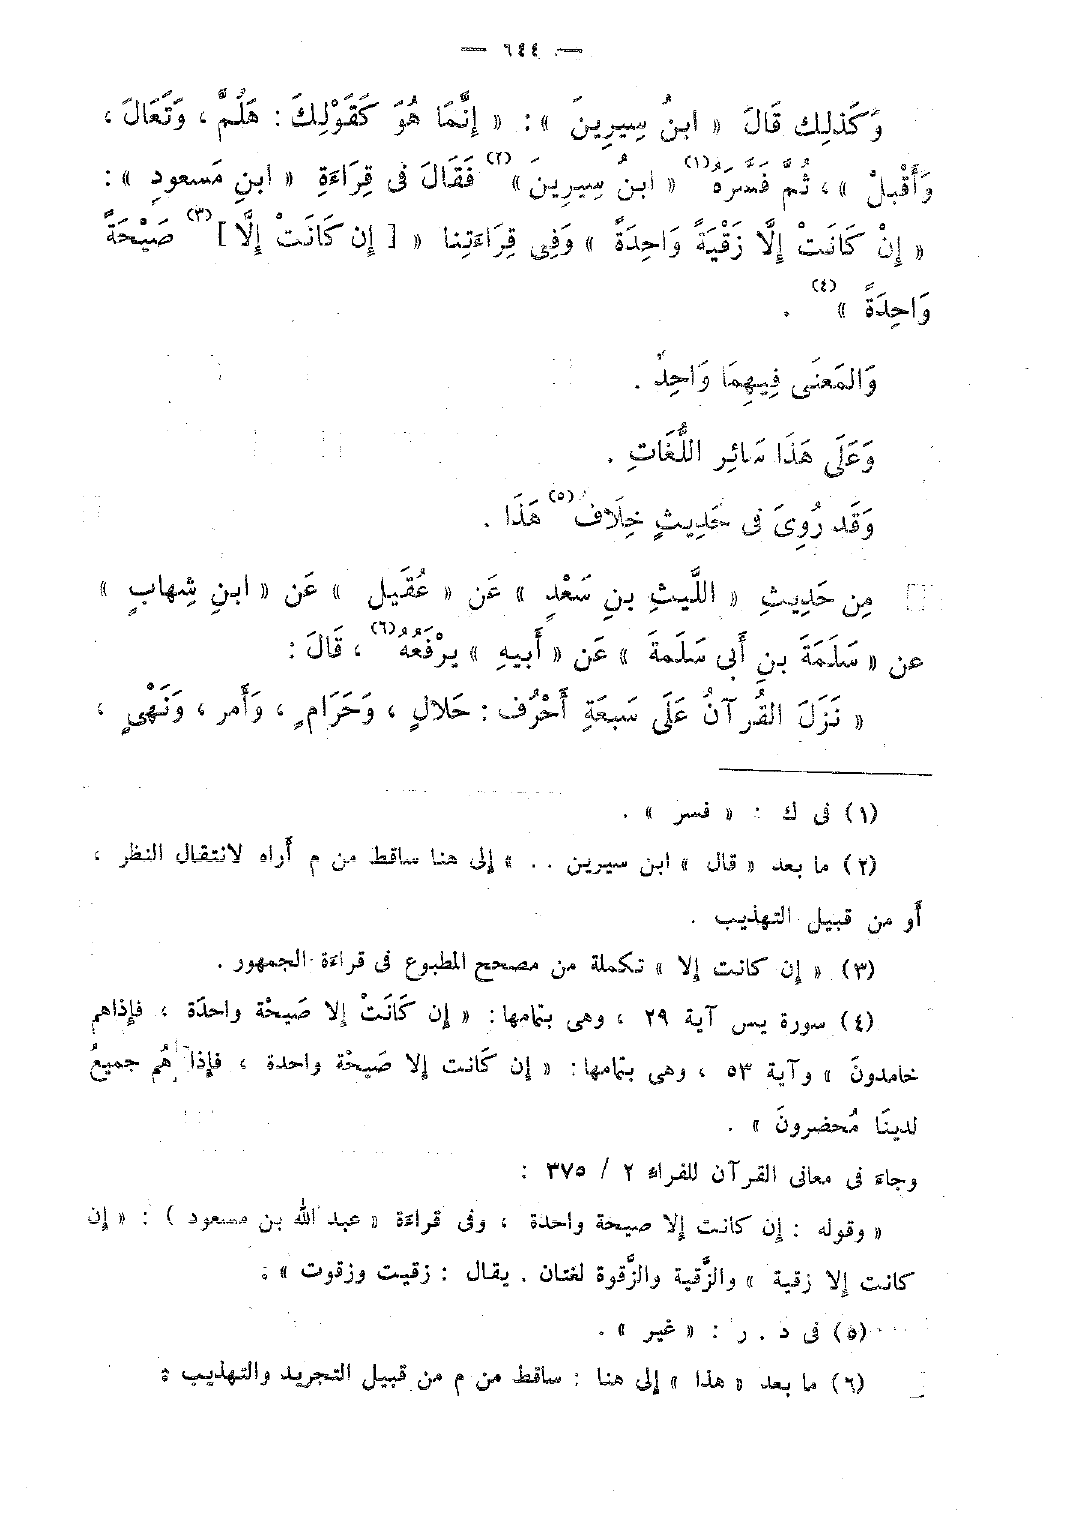 — ٦٤٤ —
وَكَذلِك قَالَ « ابنُ سِيرِينَ » : « إِنَّمَا هُوَ كَقَوْلِكَ : هَلُمَّ ، وَتَعَالَ ،
وَأَقْبلْ » ، ثُمَّ فَسَّرَهُ (١) « ابنُ سِيرِينَ » (٢) فَقَالَ فى قِرَاءَةِ « ابنِ مَسعودٍ » :
« إِنْ كَانَتْ إِلَّا زَقْيَةً وَاحِدَةً » وَفِى قِرَاءَتِنا « [ إِن كَانَتْ إِلَّا ] (٣) صَيْحَةً
وَاحِدَةً » (٤) .
وَالمَعنَى فِيهِمَا وَاحِدٌ .
وَعَلَى هَذَا سَائِرِ اللُّغَاتِ .
وَقَد رُوِىَ فى حَدِيثٍ خِلَافُ (٥) هَذَا .
مِن حَدِيثِ « اللَّيثِ بنِ سَعْدٍ » عَن « عُقَيلٍ » عَن « ابنِ شِهابٍ »
عن « سَلَمَةَ بنِ أَبى سَلَمةَ » عَن « أَبيهِ » يرْفَعُهُ (٦) ، قَالَ :
« نَزَلَ القُرآنُ عَلَى سَبعَةِ أَحْرُف : حَلالٍ ، وَحَرَامٍ ، وَأَمر ، وَنَهْىٍ ،
(١) فى ك : « فسر » .
(٢) ما بعد « قال » ابن سيرين . . » إلى هنا ساقط من م أراه لانتقال النظر ،
أو من قبيل التهذيب .
(٣) « إن كانت إلا » تكملة من مصحح المطبوع فى قراءة الجمهور .
(٤) سورة يس آية ٢٩ ، وهى بتمامها : « إن كَانَتْ إلا صَيحْة واحدَة ، فإذاهم
خامدونَ » وآية ٥٣ ، وهى بتمامها : « إن كَانت إلا صَيحْة واحدة ، فإذا هُم جميعُ
لدينَا مُحضرونَ » .
وجاء فى معانى القرآن للفراء ٢ / ٣٧٥ :
« وقوله : إن كانت إلا صيحة واحدة ، وفى قراءة « عبد الله بن مسعود ) : « إن
كانت إلا زقية » والزَّقية والزَّقوة لغتان . يقال : زقيت وزقوت » .
(٥) فى د . ر : « غير » .
(٦) ما بعد « هذا » إلى هنا : ساقط من م من قبيل التجريد والتهذيب .